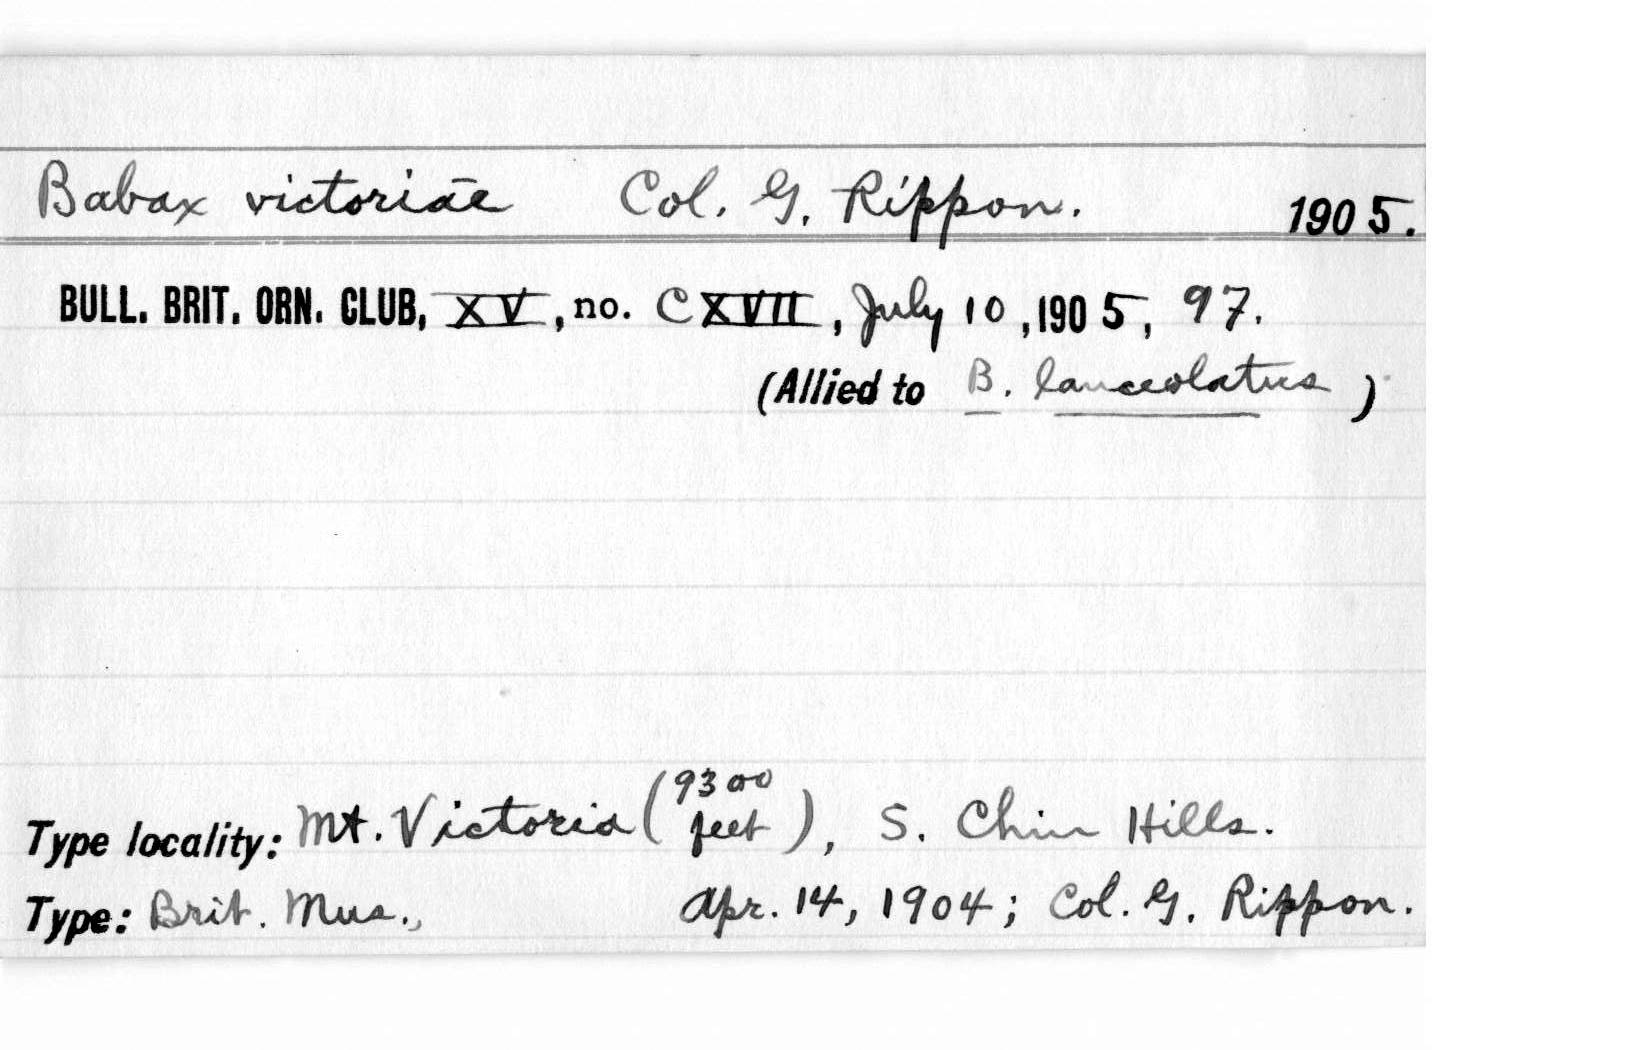 Babax victoriae Col. G. Rippon. 1905.
BULL. BRIT. ORN. CLUB, XV, no. CXVII, July 10, 1905, 97.
(Allied to B. lanceolatus)
Type locality: Mt. Victoria (9300 feet), S. Chin Hills.
Type: Brit. Mus., Apr. 14, 1904; Col. G. Rippon.